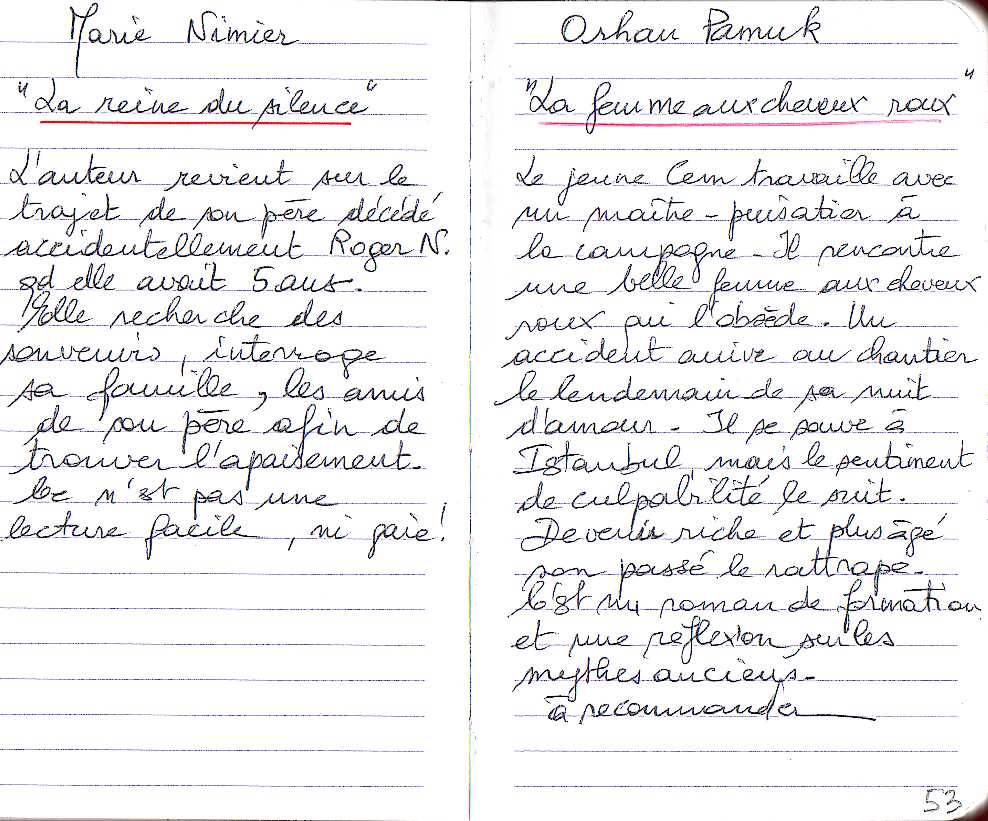 Marie Nimier
"La reine du silence"
L'auteur revient sur le
trajet de son père décédé
accidentellement Roger N.
qd elle avait 5 ans.
Elle recherche des
souvenirs, interroge
sa famille, les amis
de son père afin de
trouver l'apaisement.
Ce n'est pas une
lecture facile, ni gaie!
Orhan Pamuk
"La femme aux cheveux roux"
Le jeune Cem travaille avec
un maître-puisatier à
la campagne - Il rencontre
une belle femme aux cheveux
roux qui l'obsède. Un
accident arrive au chantier
le lendemain de sa nuit
d'amour - Il se sauve à
Istanbul, mais le sentiment
de culpabilité le suit.
Devenu riche et plus âgé
son passé le rattrape -
C'est un roman de formation
et une réflexion sur les
mythes anciens -
à recommander
53